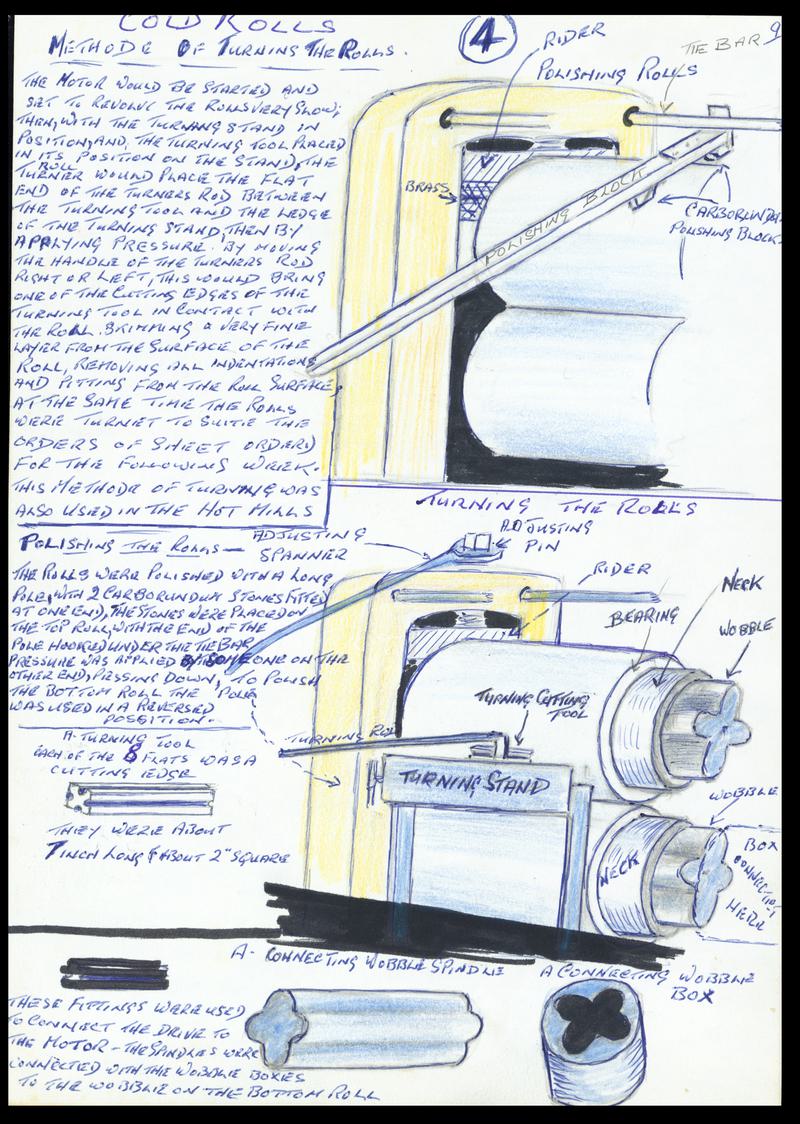 COLD ROLLS
METHODE OF TURNING THE ROLLS.
4
9
THE MOTOR WOULD BE STARTED AND
SET TO REVOLVE THE ROLLS VERY SLOW;
THEN, WITH THE TURNANG STAND IN
POSITION, AND, THE TURNING TOOL PLACED
IN ITS POSITION ON THE STAND, THE
ROLL
TURNER WOUND PLACE THE FLAT
END OF THE TURNERS ROD BETWEEN
THE TURNING TOOL AND THE LEDGE
OF THE TURNING STAND, THEN BY
APPLYING PRESSURE. BY MOVING
THE HANDLE OF THE TURNERS ROD
RIGHT OR LEFT, THIS WOULD BRING
ONE OF THE CUTTING EDGES OF THE
TURNING TOOL IN CONTACT WITH
THE ROLL. SKIMMING A VERY FINE
LAYER FROM THE SURFACE OF THE
ROLL, REMOVING ALL INDENTATIONS
AND PITTING FROM THE ROLL SURFACE,
AT THE SAME TIME THE ROLLS
WERE TURNET TO SUITE THE
ORDERS OF SHEET ORDERD
FOR THE FOLLOWING WEEK.
THIS METHODE OF TURNING WAS
ALSO USED IN THE HOT MILLS
RIDER
POLISHING ROLLS
TIE BAR
BRASS
POLISHING BLOCK
CARBORUNDUM
POLISHING BLOCK
TURNING THE ROLLS
POLISHING THE ROLLS -
THE ROLLS WERE POLISHED WITH A LONG
POLE, WITH 2 CARBORUNDUM STONES FITTED
AT ONE END, THE STONES WERE PLACED ON
THE TOP ROLL, WITH THE END OF THE
POLE HOOKED UNDER THE TIE BAR
PRESSURE WAS APPLIED BY SOMEONE ON THE
OTHER END, PRESSING DOWN, TO POLISH
THE BOTTOM ROLL THE POLE
WAS USED IN A REVERSED
POSSITION.
ADJUSTING
SPANNER
ADJUSTING
PIN
RIDER
BEARING
NECK
WOBBLE
TURNING CUTTING
TOOL
TURNING ROD
TURNING STAND
A. TURNING TOOL
EACH OF THE 8 FLATS WAS A
CUTTING EDGE
THEY WERE ABOUT
7 INCH LONG & ABOUT 2" SQUARE
NECK
WOBBLE
BOX
CONNECTION
HERE
A- CONNECTING WOBBLE SPINDLE
A CONNECTING WOBBLE
BOX
THESE FITTINGS WERE USED
TO CONNECT THE DRIVE TO
THE MOTOR - THE SPINDLES WERE
CONNECTED WITH THE WOBBLE BOXES
TO THE WOBBLIE ON THE BOTTOM ROLL